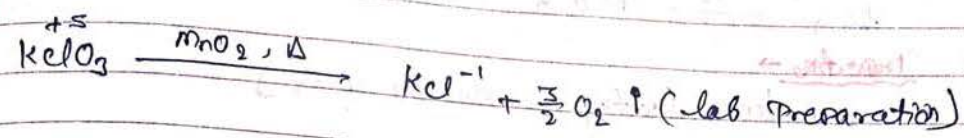 +5
KClO₃ —MnO₂, Δ→ KCl⁻¹ + 3/2 O₂ ↑ (lab Preparation)